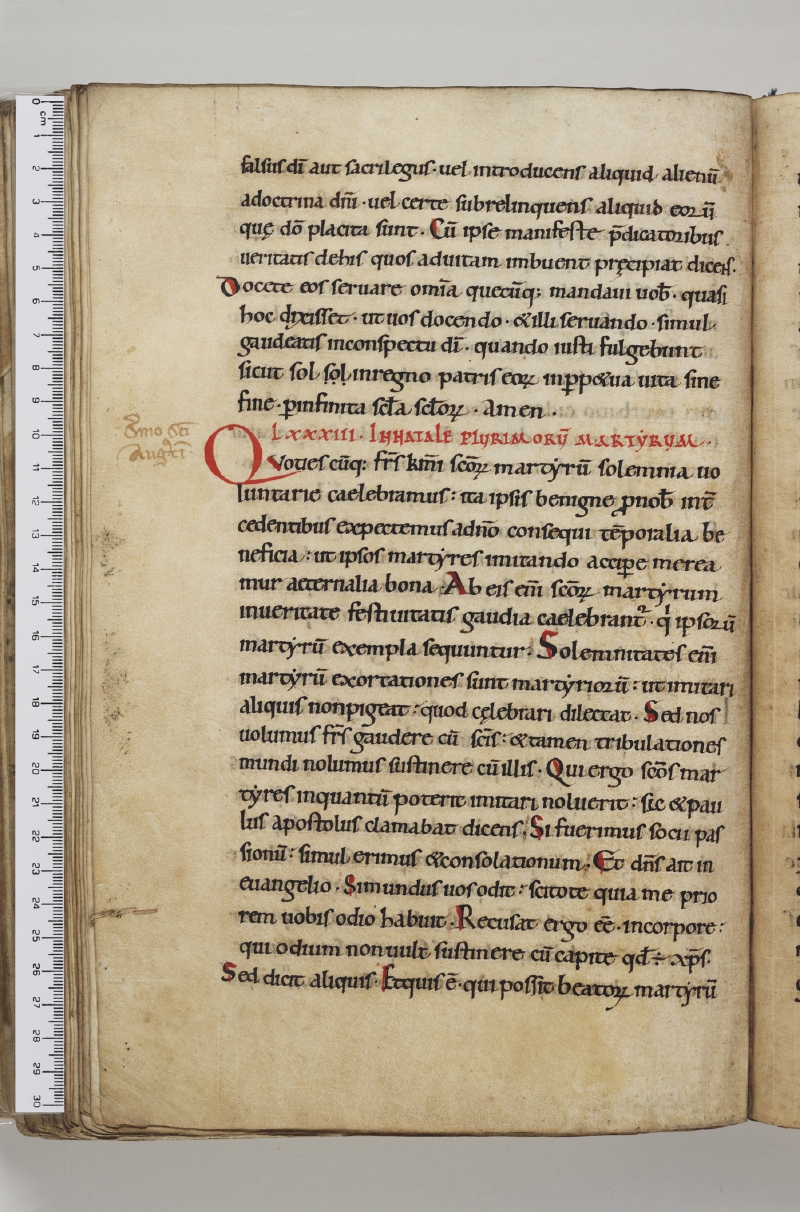 falsus dī aut sacrilegus· uel introducens aliquid alienū
adoctrina dn̄i · uel certe subrelinquens aliquid eoꝝ ū
quę dō placita sunt · Cū ipse manifeste p̄dicatoribus
ueritatis dehis quos aduitam imbuent pręcipiat dicens.
Docete eos seruare om̄ia quecūq; mandaui uob̄ · quasi
hoc dixisset · ut uos docendo · & illi seruando · simul
gaudeatis inconspectu dī · quando iusti fulgebunt
sicut sol sol inregno patris eoꝝ inp̱p&ua uita sine
fine · ꝑinfinita scl̄a scl̄oꝝ · Amen ·
LXXXIII · INNATALE PLURIMORŪ MARTYRUM ·
Quotiescūq; fr̄s km̄i scōꝝ martẏrū solemnia uo
luntarie caelebramus : ita ipsis benigne ꝓnob̄ int̄
cedentibus expectemus adn̄o consequi tēporalia be
neficia : ut ipsos martẏres imitando accipe merea
mur aeternalia bona · Ab eis em̄ scōꝝ martẏrum
inueritate festiuitatis gaudia caelebrant᷑ · qͥ ipsoꝝ ū
martẏrū exempla sequuntur : Solemnitates em̄
martẏrū exortationes sunt martẏriorū : ut imitari
aliquis nonpigeat : quod cęlebrari delectat · Sed nos
uolumus fr̄s gaudere cū sc̄is : & tamen tribulationes
mundi nolumus sustinere cū illis · Qui ergo scōs mar
tẏres inquantū poterit imitari noluerit : sic & pau
lus apostolus clamabat dicens · Si fuerimus socii pas
sionū : simul erimus & consolationum · Et dn̄s ait in
euangelio · Si mundus uos odit : scitote quia me prio
rem uobis odio habuit · Recusat ergo ēē · incorpore :
qui odium non uult sustinere cū capite qd̄ ÷ xp̄s.
Sed dicit aliquis · Etquis ē · qui possit beatoꝝ martẏrū
Smo sc̄i
Aug᷑ti
0 cm 1 2 3 4 5 6 7 8 9 10 11 12 13 14 15 16 17 18 19 20 21 22 23 24 25 26 27 28 29 30